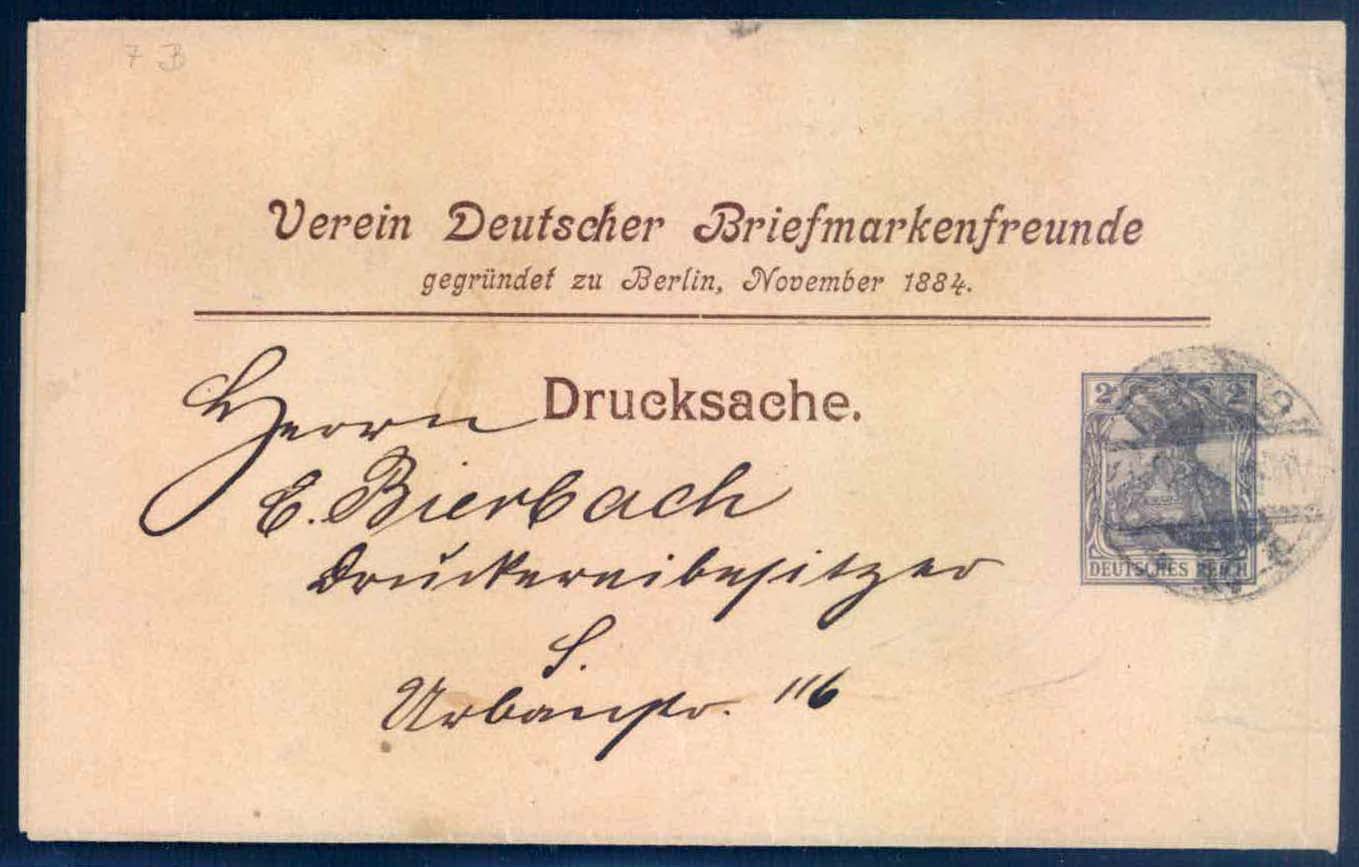 7 B
Verein Deutscher Briefmarkenfreunde
gegründet zu Berlin, November 1884.
Drucksache.
Herrn
E. Bierbach
Druckereibesitzer
S.
Urbanstr. 116
2 2
DEUTSCHES REICH